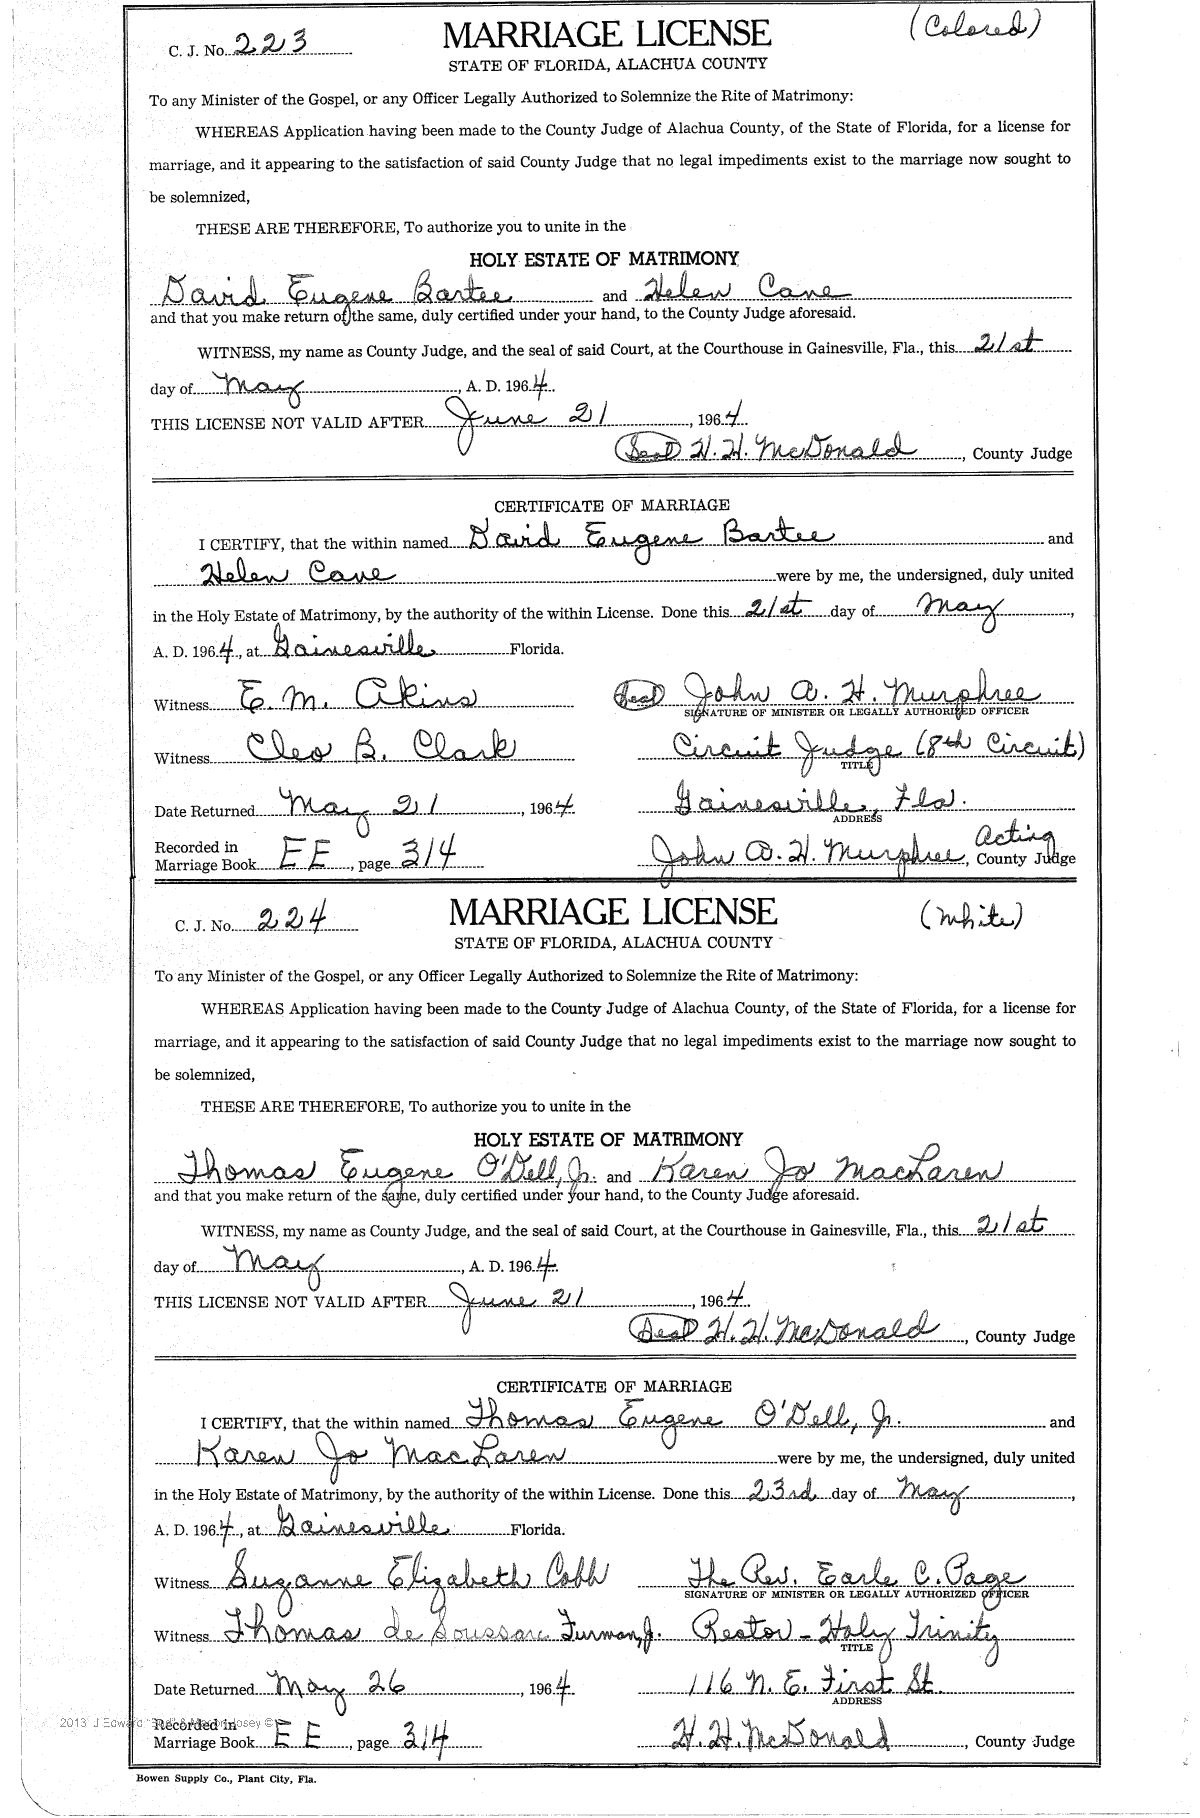 C. J. No. 223 MARRIAGE LICENSE (Colored)
STATE OF FLORIDA, ALACHUA COUNTY
To any Minister of the Gospel, or any Officer Legally Authorized to Solemnize the Rite of Matrimony:
WHEREAS Application having been made to the County Judge of Alachua County, of the State of Florida, for a license for
marriage, and it appearing to the satisfaction of said County Judge that no legal impediments exist to the marriage now sought to
be solemnized,
THESE ARE THEREFORE, To authorize you to unite in the
HOLY ESTATE OF MATRIMONY
David Eugene Bartee and Helen Cane
and that you make return of the same, duly certified under your hand, to the County Judge aforesaid.
WITNESS, my name as County Judge, and the seal of said Court, at the Courthouse in Gainesville, Fla., this 21st
day of May, A. D. 1964.
THIS LICENSE NOT VALID AFTER June 21, 1964.
(Seal) H. H. McDonald, County Judge
CERTIFICATE OF MARRIAGE
I CERTIFY, that the within named David Eugene Bartee and
Helen Cane were by me, the undersigned, duly united
in the Holy Estate of Matrimony, by the authority of the within License. Done this 21st day of May,
A. D. 1964, at Gainesville Florida.
Witness E. M. Akins (Seal) John A. H. Murphree
SIGNATURE OF MINISTER OR LEGALLY AUTHORIZED OFFICER
Witness Cleo B. Clark Circuit Judge (8th Circuit)
TITLE
Date Returned May 21, 1964 Gainesville, Fla.
ADDRESS
Recorded in Acting
Marriage Book EE, page 314 John A. H. Murphree, County Judge
C. J. No. 224 MARRIAGE LICENSE (White)
STATE OF FLORIDA, ALACHUA COUNTY
To any Minister of the Gospel, or any Officer Legally Authorized to Solemnize the Rite of Matrimony:
WHEREAS Application having been made to the County Judge of Alachua County, of the State of Florida, for a license for
marriage, and it appearing to the satisfaction of said County Judge that no legal impediments exist to the marriage now sought to
be solemnized,
THESE ARE THEREFORE, To authorize you to unite in the
HOLY ESTATE OF MATRIMONY
Thomas Eugene O'Dell, Jr. and Karen Jo MacLaren
and that you make return of the same, duly certified under your hand, to the County Judge aforesaid.
WITNESS, my name as County Judge, and the seal of said Court, at the Courthouse in Gainesville, Fla., this 21st
day of May, A. D. 1964.
THIS LICENSE NOT VALID AFTER June 21, 1964.
(Seal) H. H. McDonald, County Judge
CERTIFICATE OF MARRIAGE
I CERTIFY, that the within named Thomas Eugene O'Dell, Jr. and
Karen Jo MacLaren were by me, the undersigned, duly united
in the Holy Estate of Matrimony, by the authority of the within License. Done this 23rd day of May,
A. D. 1964, at Gainesville Florida.
Witness Suzanne Elizabeth Cobb The Rev. Earle C. Page
SIGNATURE OF MINISTER OR LEGALLY AUTHORIZED OFFICER
Witness Thomas de Furman, Jr. Rector - Holy Trinity
TITLE
Date Returned May 26, 1964. 116 N. E. First St.
ADDRESS
2013 J Edward & Josey ©
Recorded in
Marriage Book EE, page 314 H. H. McDonald, County Judge
Bowen Supply Co., Plant City, Fla.